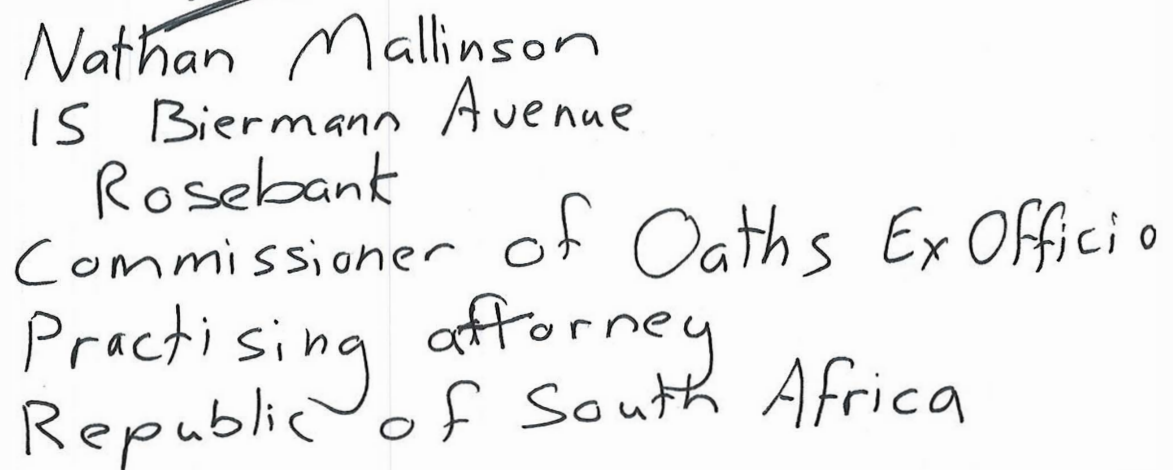 Nathan Mallinson
15 Biermann Avenue
Rosebank
Commissioner of Oaths Ex Officio
Practising attorney
Republic of South Africa